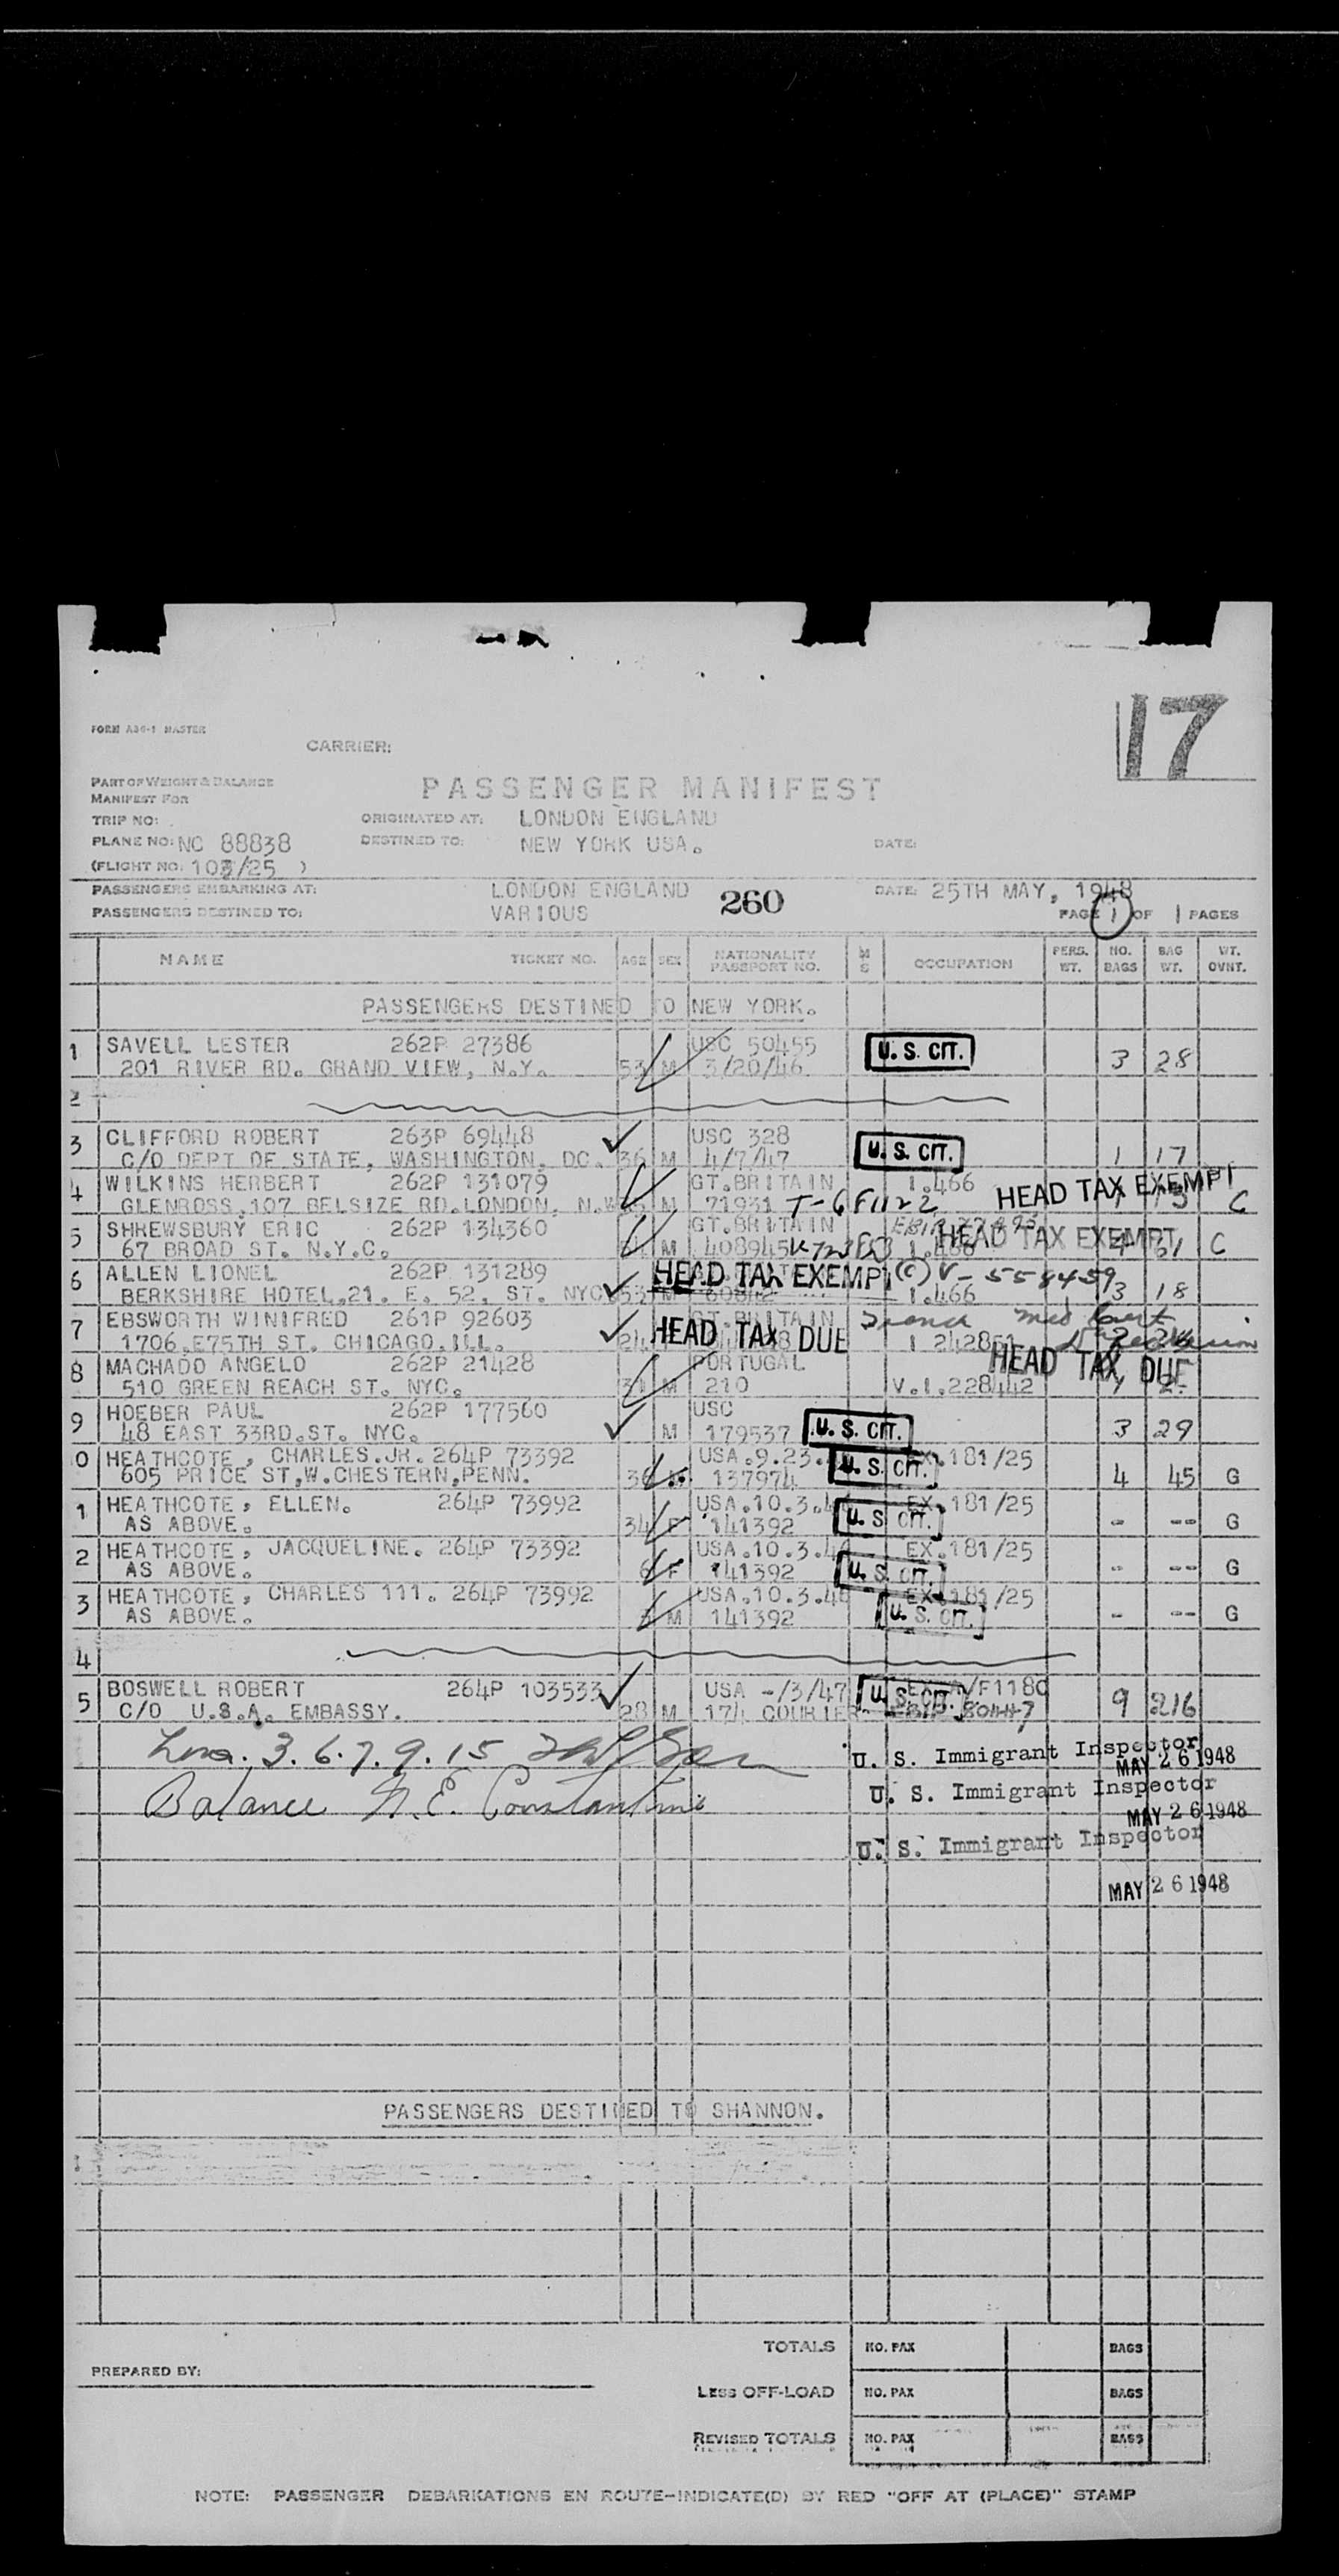 17
FORM A36-1 MASTER
CARRIER:
PART OF WEIGHT & BALANCE
MANIFEST FOR
PASSENGER MANIFEST
TRIP NO:
ORIGINATED AT: LONDON ENGLAND
PLANE NO: NC 88838
DESTINED TO: NEW YORK USA. DATE:
(FLIGHT NO: 103/25 )
PASSENGERS EMBARKING AT: LONDON ENGLAND 260 DATE: 25TH MAY, 1948
PASSENGERS DESTINED TO: VARIOUS PAGE 1 OF 1 PAGES
NAME TICKET NO. AGE SEX NATIONALITY PASSPORT NO. M S OCCUPATION PERS. WT. NO. BAGS BAG WT. WT. OVNT.
PASSENGERS DESTINED TO NEW YORK.
1 SAVELL LESTER 262P 27386 USC 50455 U. S. CIT.
201 RIVER RD. GRAND VIEW, N.Y. 53 M 3/20/46 3 28
2
3 CLIFFORD ROBERT 263P 69448 USC 328 U. S. CIT.
C/O DEPT OF STATE, WASHINGTON, DC. 36 M 4/7/47 1 17
4 WILKINS HERBERT 262P 131079 GT.BRITAIN 1.466 HEAD TAX EXEMPT
GLENROSS,107 BELSIZE RD.LONDON, N.W. M 71931 T-6F1122 C
5 SHREWSBURY ERIC 262P 134360 GT.BRITAIN HEAD TAX EXEMPT
67 BROAD ST. N.Y.C. M 408945 1.466 C
6 ALLEN LIONEL 262P 131289 HEAD TAX EXEMPT (C) V-558459
BERKSHIRE HOTEL,21. E. 52, ST. NYC 53 M 1.466 3 18
7 EBSWORTH WINIFRED 261P 92603 GT.BRITAIN med
1706,E75TH ST. CHICAGO,ILL. 24 HEAD TAX DUE
8 MACHADO ANGELO 262P 21428 PORTUGAL HEAD TAX DUE
510 GREEN REACH ST. NYC. 31 M 210 V.1.228442
9 HOEBER PAUL 262P 177560 USC
48 EAST 33RD.ST. NYC. M 179537 U. S. CIT. 3 29
0 HEATHCOTE, CHARLES.JR. 264P 73392 USA.9.23. EX.181/25
605 PRICE ST,W.CHESTERN,PENN. 36 137974 U. S. CIT. 4 45 G
1 HEATHCOTE, ELLEN. 264P 73992 USA.10.3.46 EX.181/25
AS ABOVE. 34 F 141392 U. S. CIT. - -- G
2 HEATHCOTE, JACQUELINE. 264P 73392 USA.10.3.46 EX.181/25
AS ABOVE. 6 F 141392 U. S. CIT. - -- G
3 HEATHCOTE, CHARLES 111. 264P 73992 USA.10.3.46 EX.181/25
AS ABOVE. M 141392 U. S. CIT. - -- G
4
5 BOSWELL ROBERT 264P 103533 USA -/3/47 U. S. CIT.
C/O U.S.A. EMBASSY. 28 M 174 COURIER 9 216
3.6.7.9.15
U. S. Immigrant Inspector
MAY 26 1948
Balance N.E. Constantine
U. S. Immigrant Inspector
MAY 26 1948
U. S. Immigrant Inspector
MAY 26 1948
PASSENGERS DESTINED TO SHANNON.
TOTALS NO. PAX BAGS
PREPARED BY:
LESS OFF-LOAD NO. PAX BAGS
REVISED TOTALS NO. PAX BAGS
NOTE: PASSENGER DEBARKATIONS EN ROUTE-INDICATE(D) BY RED "OFF AT (PLACE)" STAMP